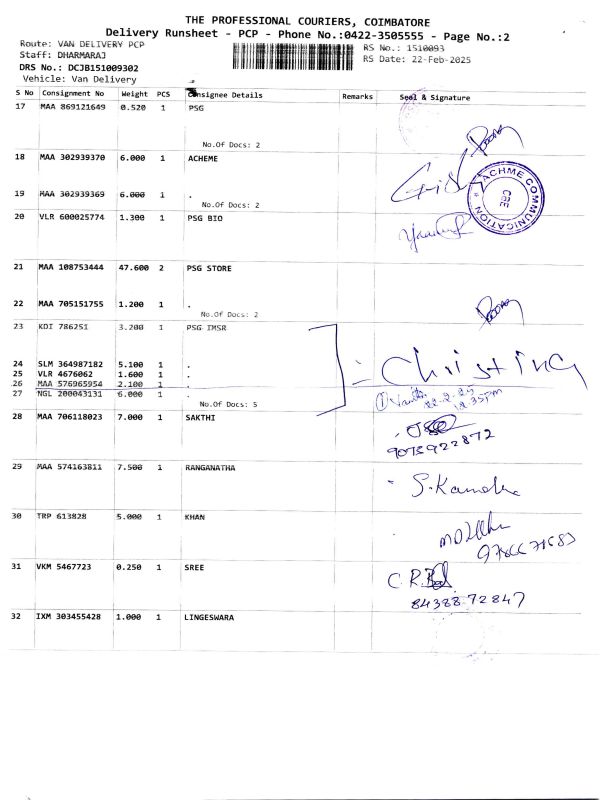 THE PROFESSIONAL COURIERS, COIMBATORE
Delivery Runsheet - PCP - Phone No.:0422-3505555 - Page No.:2
Route: VAN DELIVERY PCP
RS No.: 1510093
Staff: DHARMARAJ
RS Date: 22-Feb-2025
DRS No.: DCJB151009302
Vehicle: Van Delivery
S No Consignment No Weight PCS Consignee Details Remarks Seal & Signature
17 MAA 869121649 0.520 1 PSG
No.Of Docs: 2
18 MAA 302939370 6.000 1 ACHEME
ACHME COMMUNICATION
CBE
19 MAA 302939369 6.000 1 .
No.Of Docs: 2
20 VLR 600025774 1.300 1 PSG BIO
21 MAA 108753444 47.600 2 PSG STORE
22 MAA 705151755 1.200 1 .
No.Of Docs: 2
23 KDI 786251 3.200 1 PSG IMSR
24 SLM 364987182 5.100 1 .
25 VLR 4676062 1.600 1 .
Christina
26 MAA 576965954 2.100 1 .
27 NGL 200043131 6.000 1 .
22.2.25
12.35pm
No.Of Docs: 5
28 MAA 706118023 7.000 1 SAKTHI
9075922872
29 MAA 574163811 7.500 1 RANGANATHA
S.Kamala
30 TRP 613828 5.000 1 KHAN
31 VKM 5467723 0.250 1 SREE
C.R.
84388 72847
32 IXM 303455428 1.000 1 LINGESWARA